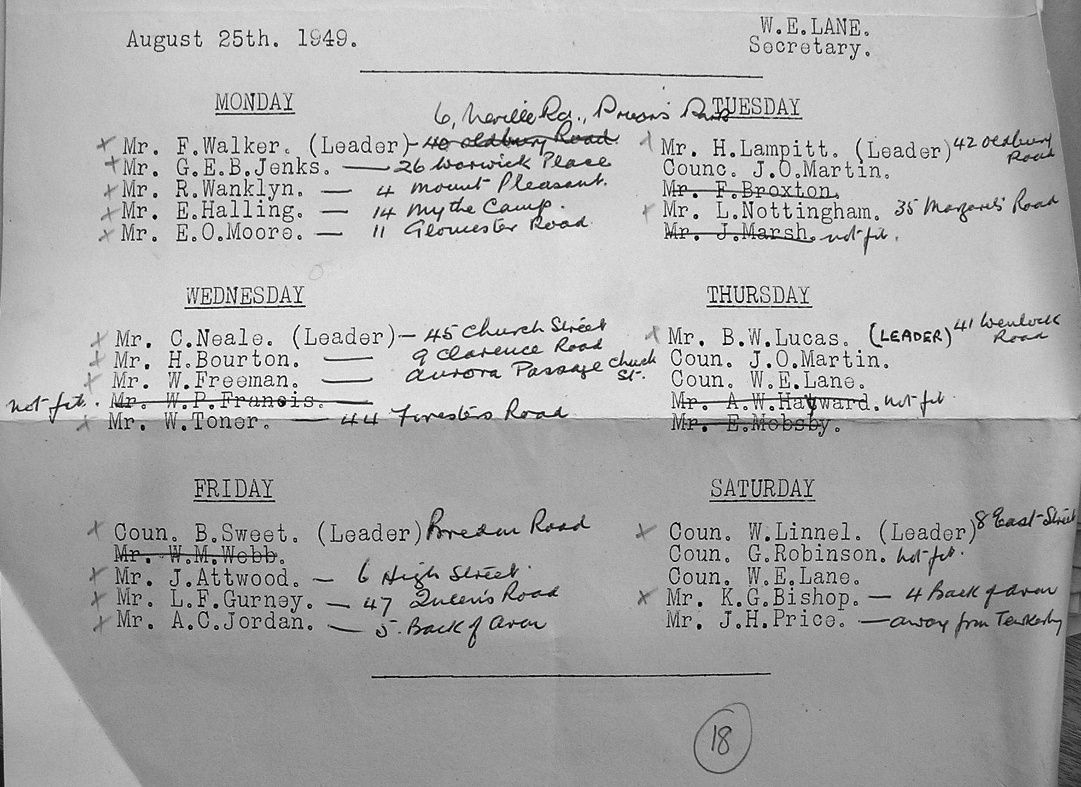 August 25th. 1949.
W.E.LANE.
Secretary.
MONDAY
6, Neville Rd., Priors Park
Mr. F.Walker. (Leader) - 40 Oldbury Road
Mr. G.E.B.Jenks. — 26 Warwick Place
Mr. R.Wanklyn. — 4 Mount Pleasant.
Mr. E.Halling. — 14 Mythe Camp.
Mr. E.O.Moore. — 11 Gloucester Road
TUESDAY
Mr. H.Lampitt. (Leader) 42 Oldbury Road
Counc. J.O.Martin.
Mr. F.Broxton.
Mr. L.Nottingham. 35 Margaret's Road
Mr. J.Marsh. not fit.
WEDNESDAY
Mr. C.Neale. (Leader) - 45 Church Street
Mr. H.Bourton. — 9 Clarence Road
Mr. W.Freeman. — Aurora Passage Church St.
not fit. Mr. W.P.Francis.
Mr. W.Toner. — 44 Foresters Road
THURSDAY
Mr. B.W.Lucas. (LEADER) 41 Wenlock Road
Coun. J.O.Martin.
Coun. W.E.Lane.
Mr. A.W.Hayward. not fit.
Mr. E.Mobsby.
FRIDAY
Coun. B.Sweet. (Leader) Bredon Road
Mr. W.M.Webb.
Mr. J.Attwood. — 6 High Street.
Mr. L.F.Gurney. — 47 Queen's Road
Mr. A.C.Jordan. — 5. Back of Avon
SATURDAY
Coun. W.Linnel. (Leader) 8 East Street
Coun. G.Robinson. not fit.
Coun. W.E.Lane.
Mr. K.G.Bishop. — 4 Back of Avon
Mr. J.H.Price. — away from Tewkesby
18